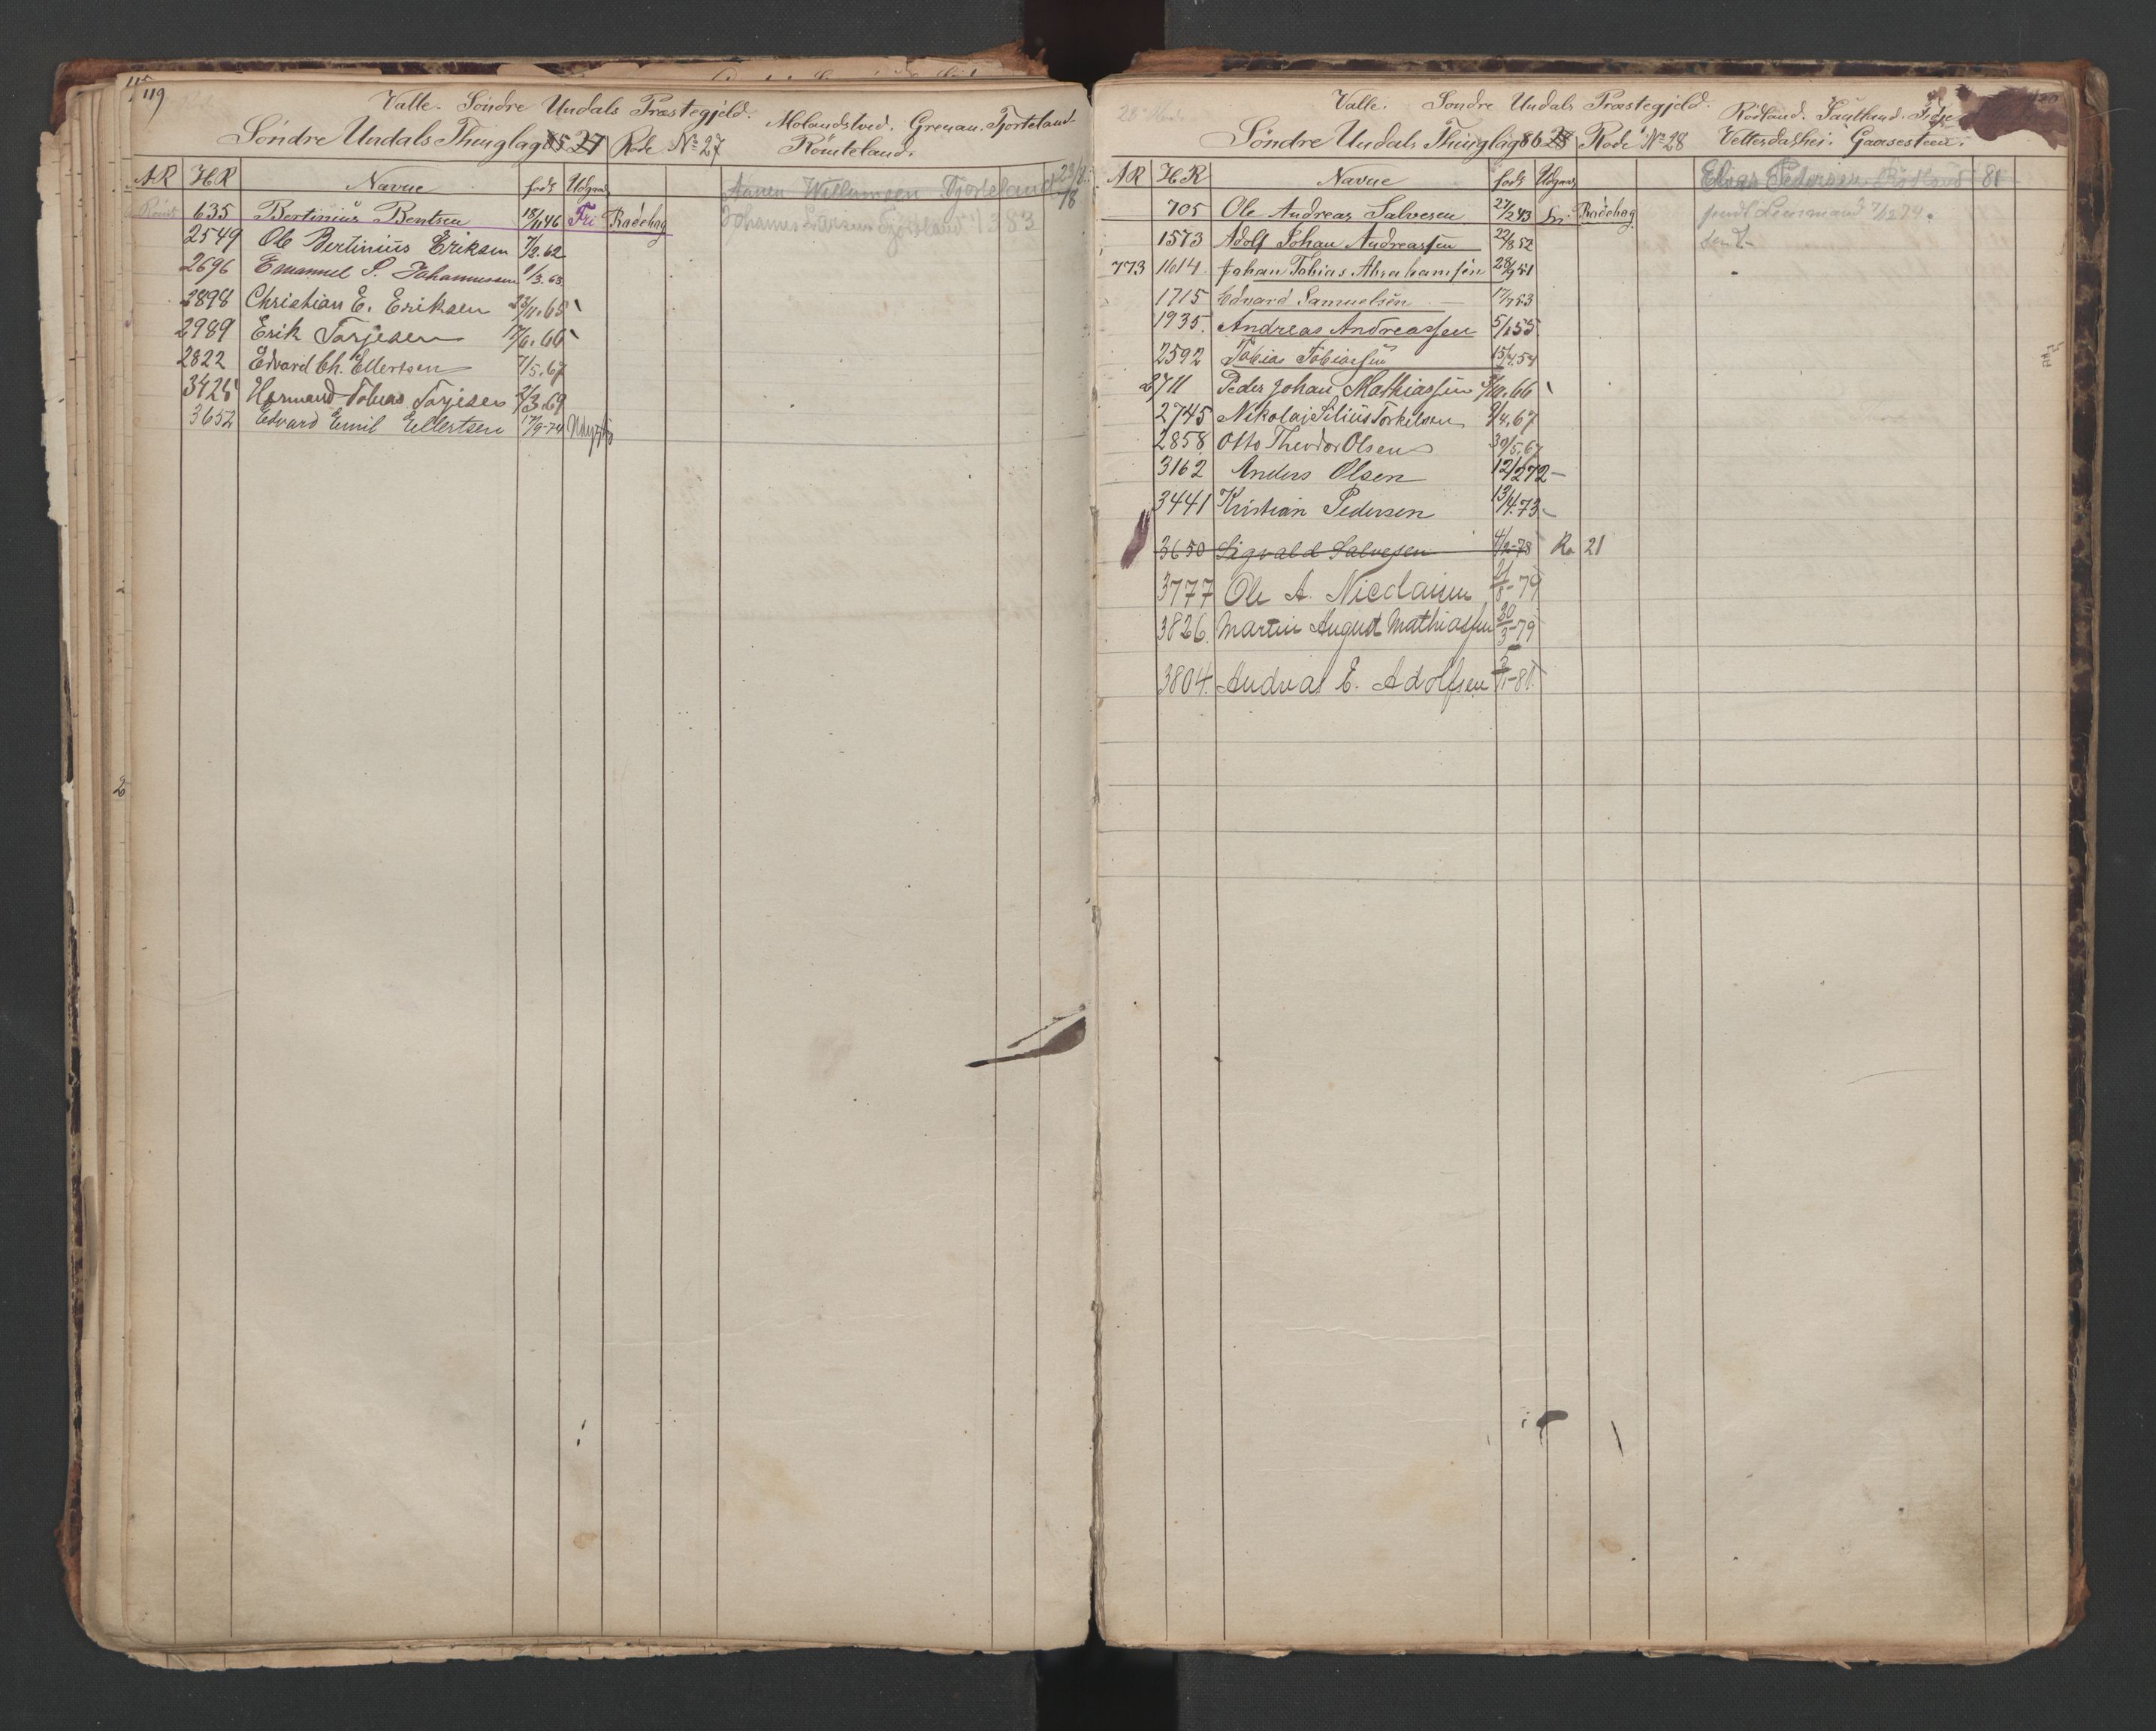 119
Valle. Söndre Undals Præstegjeld. Molandsved. Grenan. Tjorteland.
Söndre Undals Thinglag 85 27 Rode No 27 Römteland.
AR HR Navne født Udgang
635 Bertinius Bentsen 18/1 46 Fri Radehag
2549 Ole Bertinius Eriksen 7/2. 62
2696 Emanuel P. Johannessen 9/3. 63
2898 Christian E. Eriksen 23/11. 65
2989 Erik Tarjesen 17/6. 66
2822 Edvard Ch. Ellertsen 7/5. 67
3428 Hermand Tobias Tarjesen 21/3. 69
3652 Edvard Emil Ellertsen 17/9-74
Aanen Willumsen Tjorteland 23/8 78
Johannes Larsen Tjorteland 1383
Valle. Söndre Undals Præstegjeld. Rödland.
Söndre Undals Thinglag 86 28 Rode No 28 Vettersdashei. Gaasesteen.
AR HR Navne født Udgang
705 Ole Andreas Salvesen 27/2 43 Radehag
1573 Adolf Johan Andreassen 22/8 52
773 1614 Johan Tobias Abrahamsen 28/9 51
1715 Edvard Samuelsen 17/7 53
1935. Andreas Andreassen 5/1 55
2592 Tobias Tobiassen 15/4 54
2711 Peder Johan Mathiassen /10. 66
2745 Nikolai Silius Torkilsen 9/4. 67
2858 Otto Theodor Olsen 30/5. 67
3162 Anders Olsen 12/2 72
3441 Kristian Pedersen 13/4. 73
3650 Sigvald Salvesen 4/2-78 Ro 21
3777 Ole A. Nicolaisen /8-79
3826. Martin August Mathiassen 30/3-79
3804. Andreas E. Adolfsen /1-81.
Elias Pedersen Rödland 81
sendt Lensmand 7/12 79.